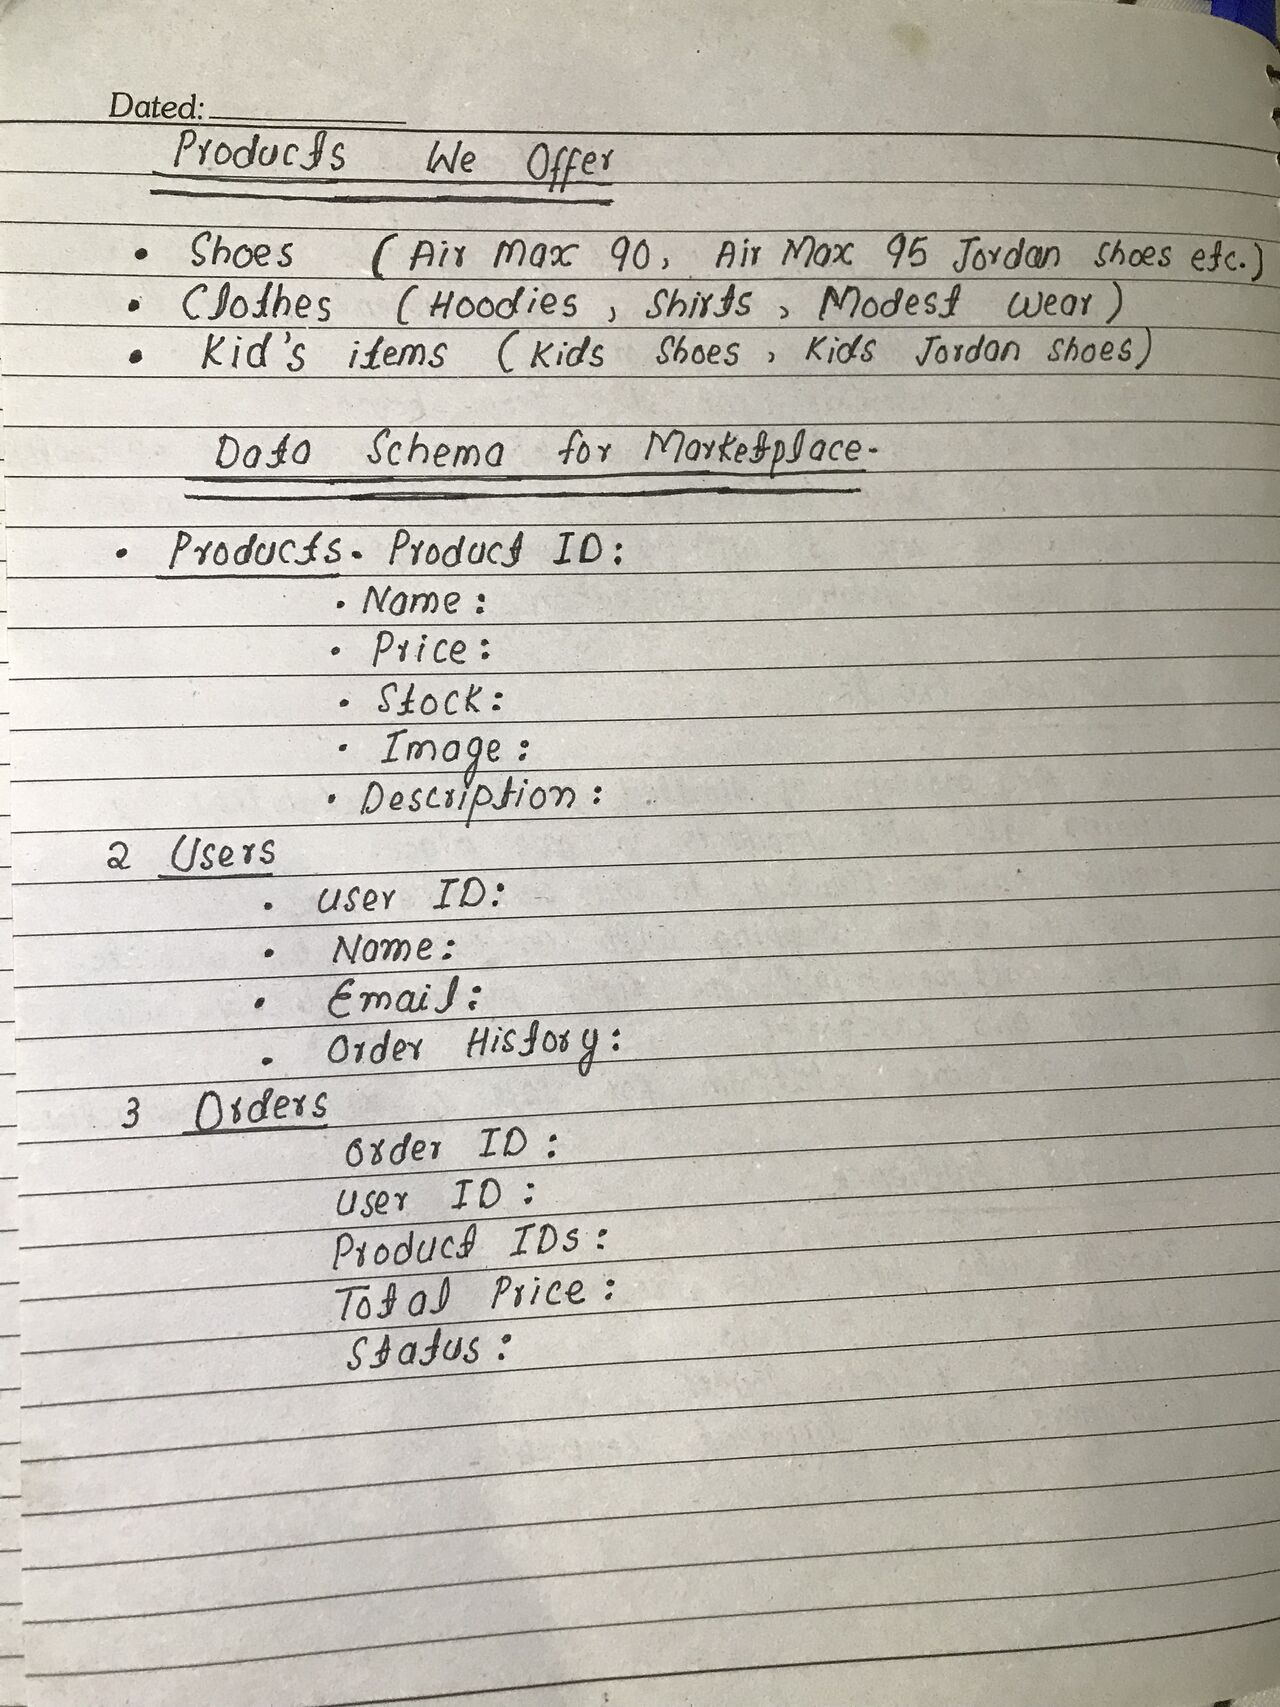 Dated:
Products We Offer
• Shoes (Air Max 90, Air Max 95 Jordan shoes etc.)
• Clothes (Hoodies, Shirts, Modest wear)
• Kid's items (Kids Shoes, Kids Jordan shoes)
Data Schema for Marketplace-
• Products • Product ID:
• Name:
• Price:
• Stock:
• Image:
• Description:
2 Users
• User ID:
• Name:
• Email:
• Order History:
3 Orders
Order ID:
User ID:
Product IDs:
Total Price:
Status: